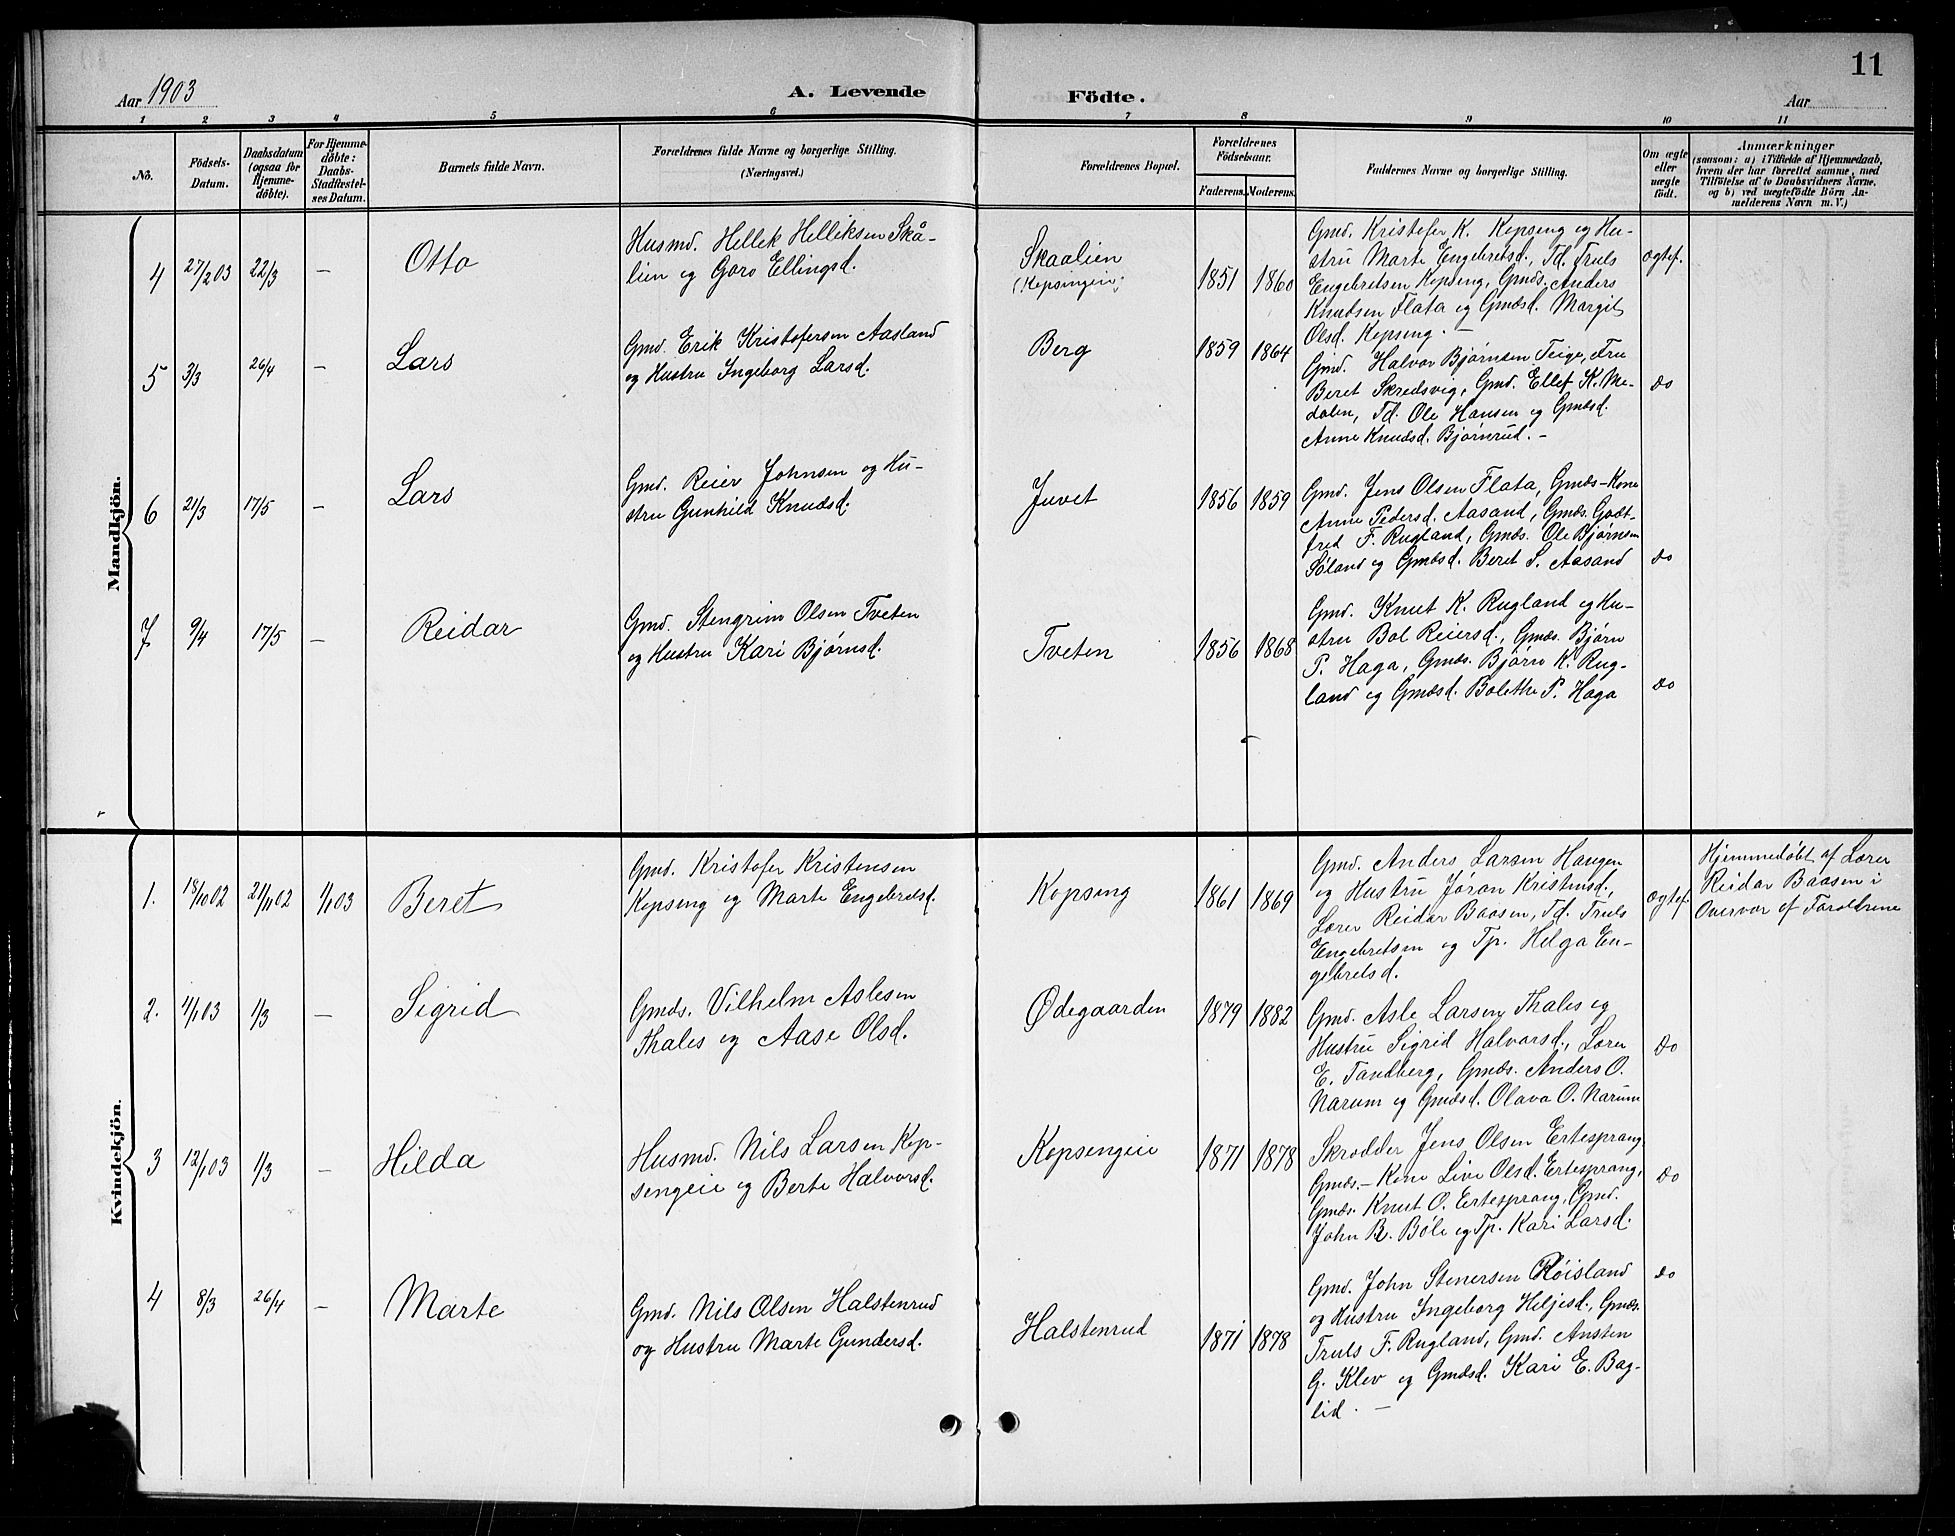 11
Aar 1903
A. Levende
Födte.
Aar
1 2 3 4 5 6 7 8 9 10 11
No.
Födsels-
Datum.
Daabsdatum
(ogsaa for
Hjemme-
döbte).
For Hjemme-
döbte:
Daabs-
Stadfæstel-
ses Datum.
Barnets fulde Navn.
Forældrenes fulde Navne og borgerlige Stilling.
(Næringsvei.)
Forældrenes Bopæl.
Forældrenes
Födselsaar.
Faderens.
Moderens.
Faddernes Navne og borgerlige Stilling.
Om ægte
eller
uægte
födt.
Anmærkninger
(saasom: a) i Tilfælde af Hjemmedaab,
hvem der har forrettet samme, med
Tilföielse af to Daabsvidners Navne,
og b) ved uægtefödte Börn An-
melderens Navn m. V.)
Mandkjön.
4 27/2 03 22/3 — Otto
Husmd. Hellek Helleksen Skå-
lien og Goro Ellingsd.
Skaalien
(Kopsengeie)
1851 1860
Gmd. Kristofer K. Kopseng og Hu-
stru Marte Engebretsd., Td. Truls
Engebretsen Kopseng, Gmds. Anders
Knudsen Flata og Gmdsd. Margit
Olsd. Kopseng. —
Ægtef.
5 3/3 26/4 — Lars
Gmd. Erik Kristofersen Aasland
og Hustru Ingeborg Larsd.
Berg
1859 1864
Gmd. Halvor Bjørnsen Teige, Fru
Beret Skredsvig, Gmd. Ellef K. Me-
dalen, Td. Ole Hansen og Gmdsd.
Anne Knudsd. Bjørnrud. —
Do
6 21/3 17/5 — Lars
Gmd. Reier Johnsen og Hu-
stru Gunhild Knudsd.
Juvet
1856 1859
Gmd. Jens Olsen Flata, Gmds-Kone
Anne Pedersd. Aasand, Gmds. Godt-
fred F. Rugland, Gmds. Ole Bjørnsen
Søland og Gmdsd. Beret S. Aasand
Do
7 9/4 17/5 — Reidar
Gmd. Stengrim Olsen Tveten
og Hustru Kari Bjørnsd.
Tveten
1856 1868
Gmd. Knut K. Rugland og Hu-
stru Bol Reiersd., Gmds. Bjørn
P. Haga, Gmds. Bjørn K. Rug-
land og Gmdsd. Bolethe P. Haga
Do
Kvindekjön.
1. 18/10 02 21/11 02 1/1 03 Beret
Gmd. Kristofer Kristensen
Kopseng og Marte Engebretsd.
Kopseng
1861 1869
Gmd. Anders Larsen Haugen
og Hustru Jøran Kristensd.,
Lærer Reidar Baasen, Td. Truls
Engebretsen og Tp. Helga En-
gebretsd.
Ægtef.
Hjemmedøbt af Lærer
Reidar Baasen i
Overvær af Forældrene
2. 4/1 03 1/3 — Sigrid
Gmds. Vilhelm Aslesen
Thales og Aase Olsd.
Ødegaarden
1879 1882
Gmd. Asle Larsen Thales og
Hustru Sigrid Halvorsd., Lærer
E. Tandberg, Gmds. Anders O.
Narum og Gmdsd. Olava O. Narum
Do
3 12/1 03 1/3 — Hilda
Husmd. Nils Larsen Kop-
sengeie og Berte Halvorsd.
Kopsengeie
1871 1878
Skrædder Jens Olsen Ertesprang
Gmds.-Kone Live Olsd. Ertesprang,
Gmds. Knut O. Ertesprang, Gmd.
John B. Bøle og Tp. Kari Larsd.
Do
4 8/3 26/4 — Marte
Gmd. Nils Olsen Halstenrud
og Hustru Marte Gundersd.
Halstenrud
1871 1878
Gmd. John Stenersen Røisland
og Hustru Ingeborg Heljesd., Gmds.
Truls F. Rugland, Gmd. Ansten
G. Klev og Gmdsd. Kari E. Bag-
lid. —
Do